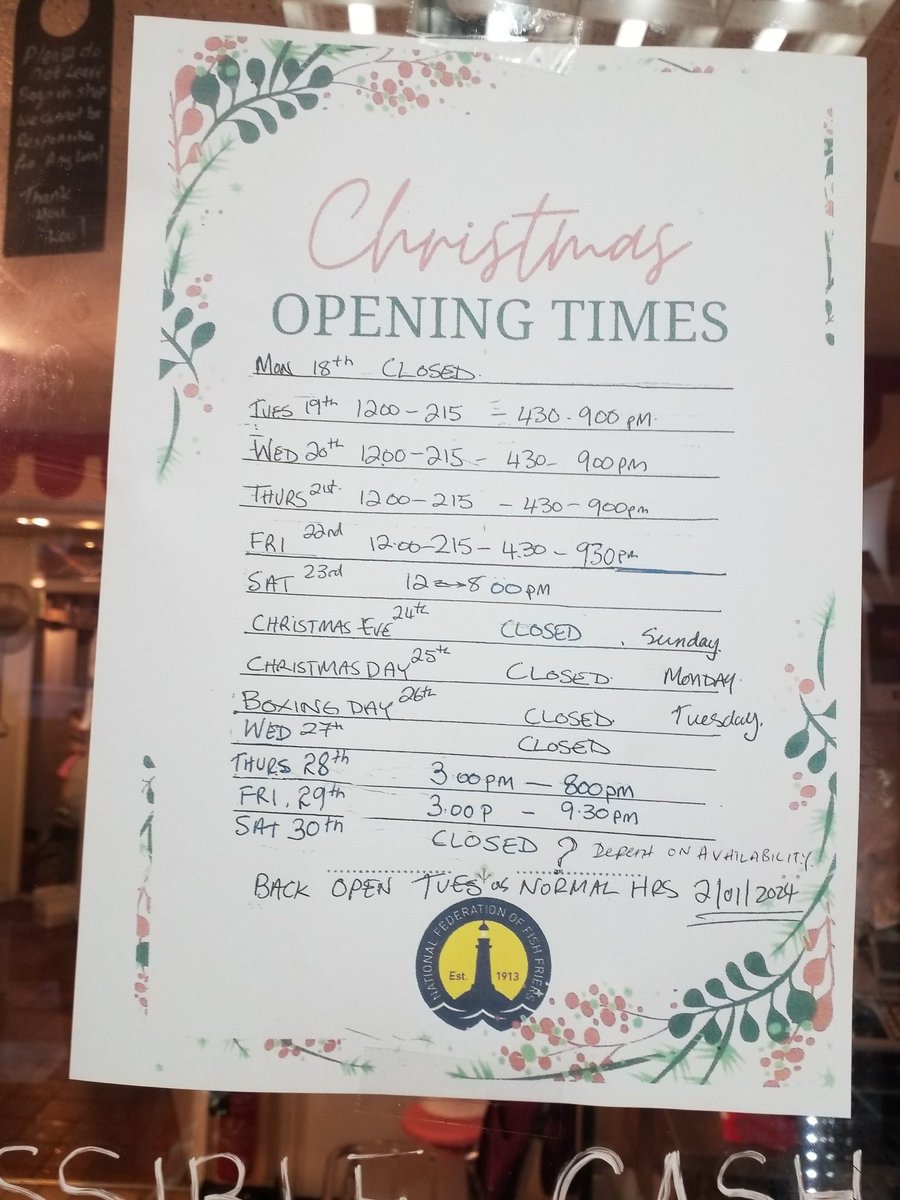 Please do
not Leave
Bags in shop
we cannot be
Responsible
for Any Loss!
Thank
you
Christmas
OPENING TIMES
MON 18th CLOSED.
TUES 19th 1200-215 - 430-900 PM.
WED 20th 1200-215- 430- 900PM
THURS 21st. 1200-215 - 430-900pm
FRI 22nd 12.00-215-4.30-930pm
SAT 23rd 12↔800PM
CHRISTMAS EVE 24th CLOSED . Sunday.
CHRISTMAS DAY 25th CLOSED. MONDAY.
BOXING DAY 26th CLOSED. Tuesday.
WED 27th CLOSED
THURS 28th 3.00PM - 800PM
FRI. 29th 3.00P - 9.30PM
SAT 30th CLOSED ? DEPENT ON AVAILABILITY.
BACK OPEN TUES as NORMAL HRS 2/01/2024
NATIONAL FEDERATION OF FISH FRIERS
Est. 1913
SSIBLE CASH